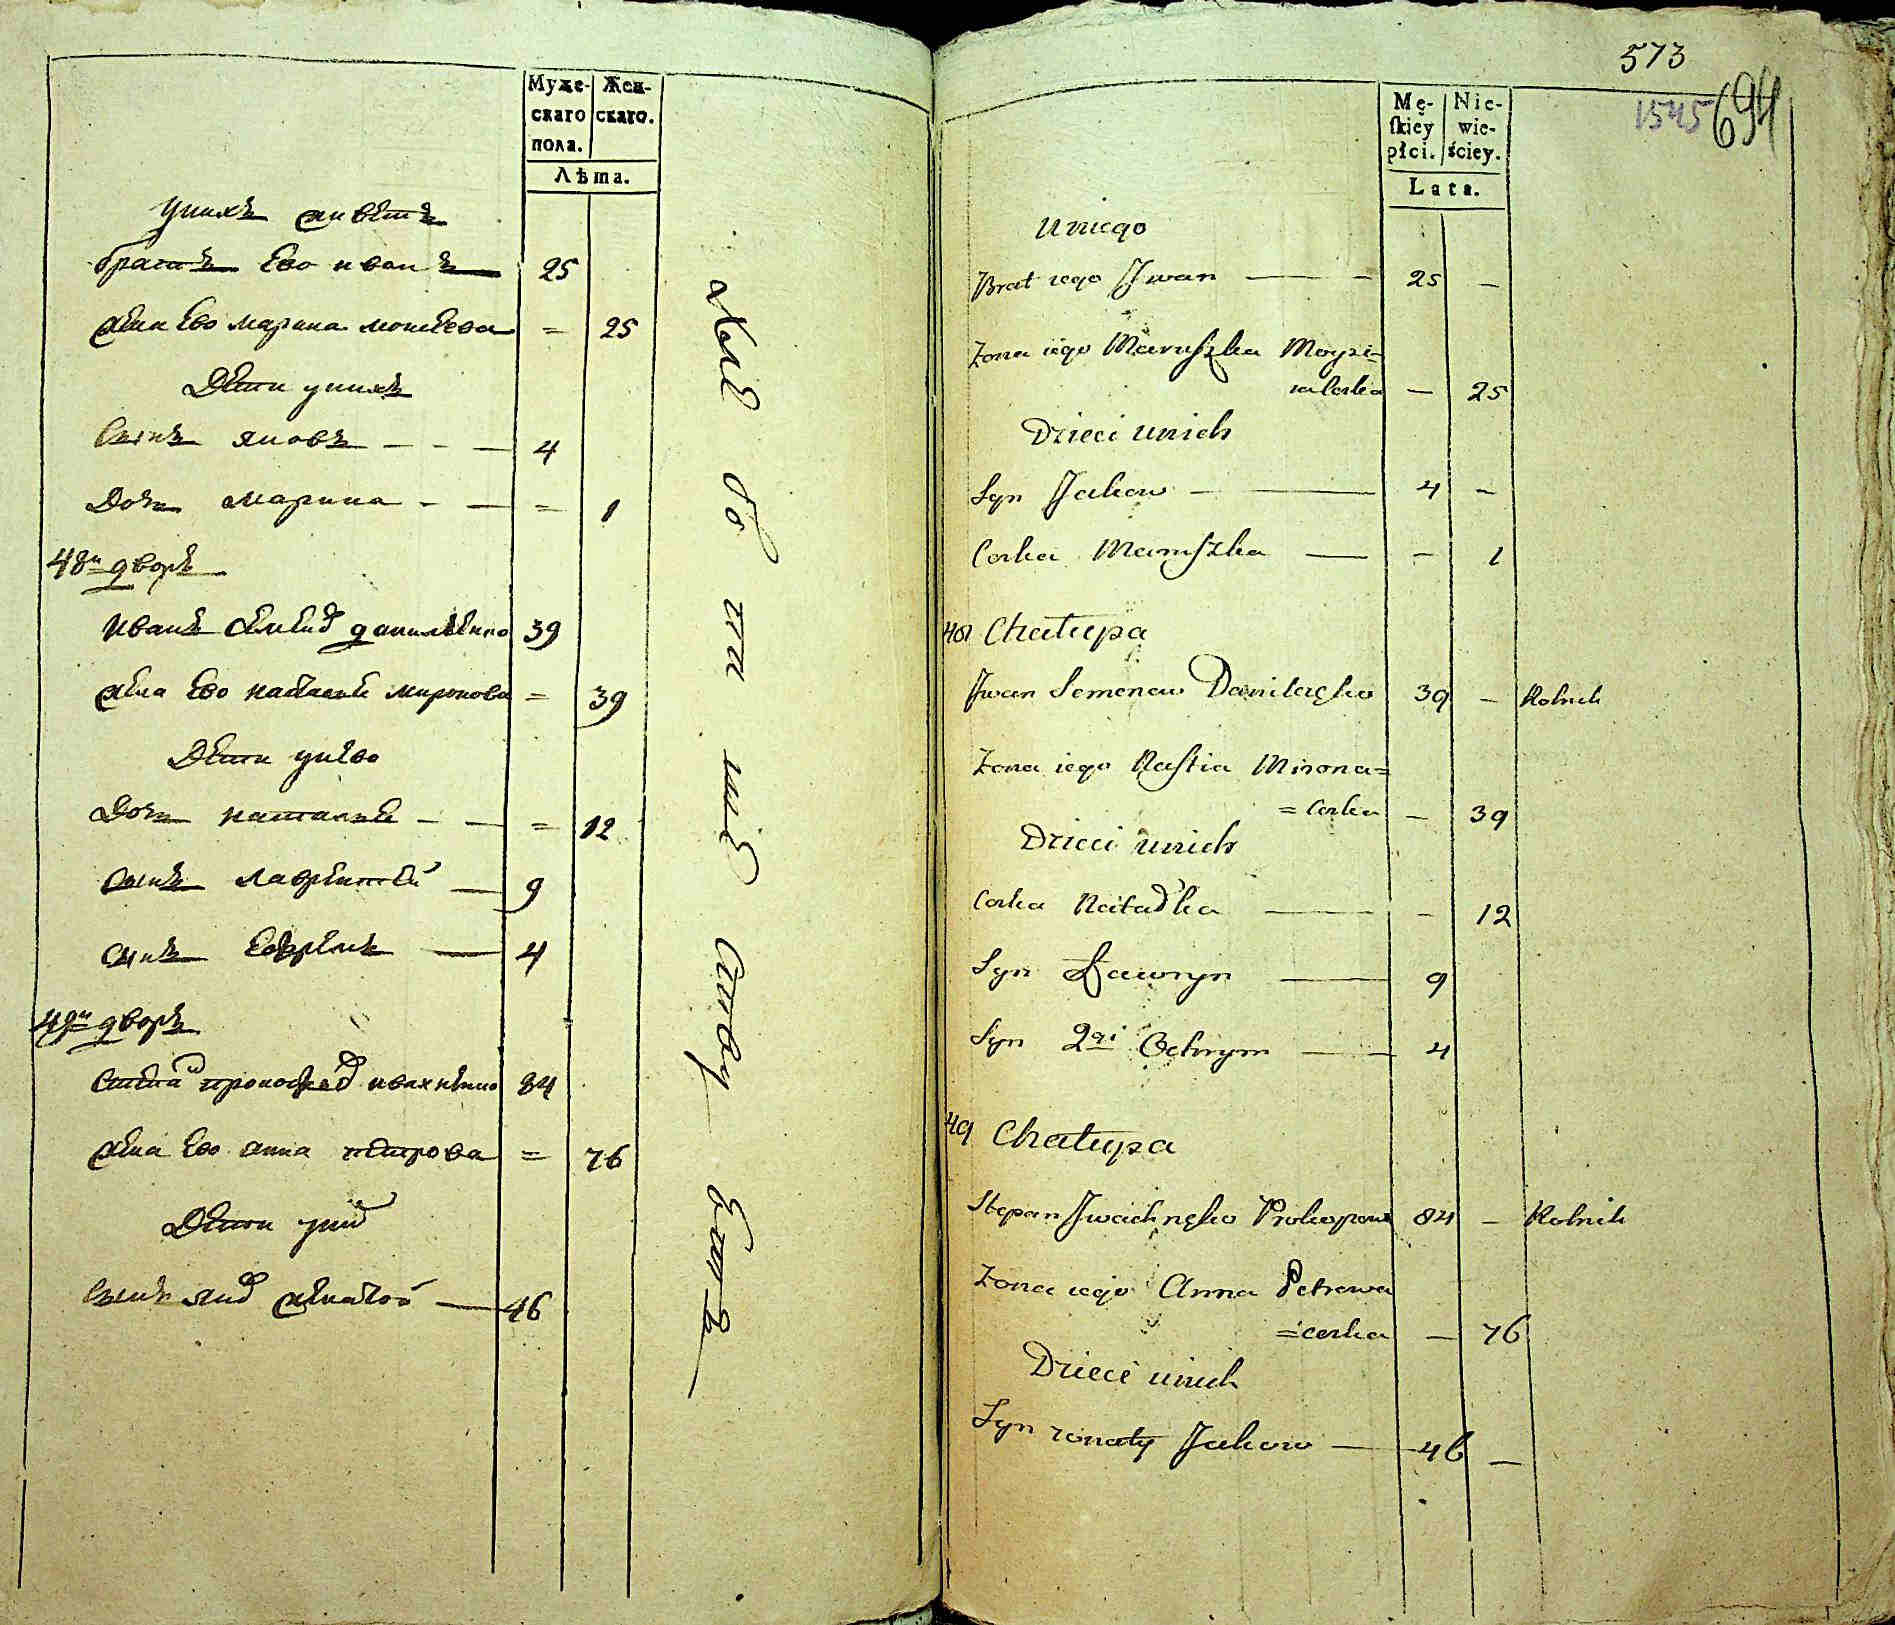 Муже-
скаго
пола.
Жен-
скаго.
Лѣта.
унихъ живетъ
братъ Ево иванъ 25
жена Ево марина = 25
Дети унихъ
Сынъ яковъ - - — 4
Дочь марина - — = 1
48й дворъ
Иванъ данилѣнко 39
жена Ево настасья миронова = 39
Дети унево
Дочь наталья - — = 12
сынъ лаврентей — 9
сынъ Ефремъ — 4
49й дворъ
ивахненко 84
жена Ево анна петрова = 76
Дети
Сынъ женатой — 46
573
1545
694
Mę-
skiey
płci.
Nie-
wie-
ściey.
Lata.
Uniego
Brat iego Iwan — — 25 —
Zona iego Maruszka Moysi-
iaCorka — 25
Dzieci Unich
Syn Jakow - — 4 —
Corka Maruszka — - 1
48 Chałupa
Iwan Semenow Danilęko 39 — Rolnik
Zona iego Nastia Mirona=
=Corka — 39
Dzieci unich
Corka Natałka — - 12
Syn Ławryn — 9
Syn 2gi Ochrym — 4
49 Chałupa
Stepan Iwachnęko Prokopow 84 — Rolnik
Zona iego Anna Petrowa
=corka — 76
Dzieci unich
Syn zonaty Jakow — 46 —